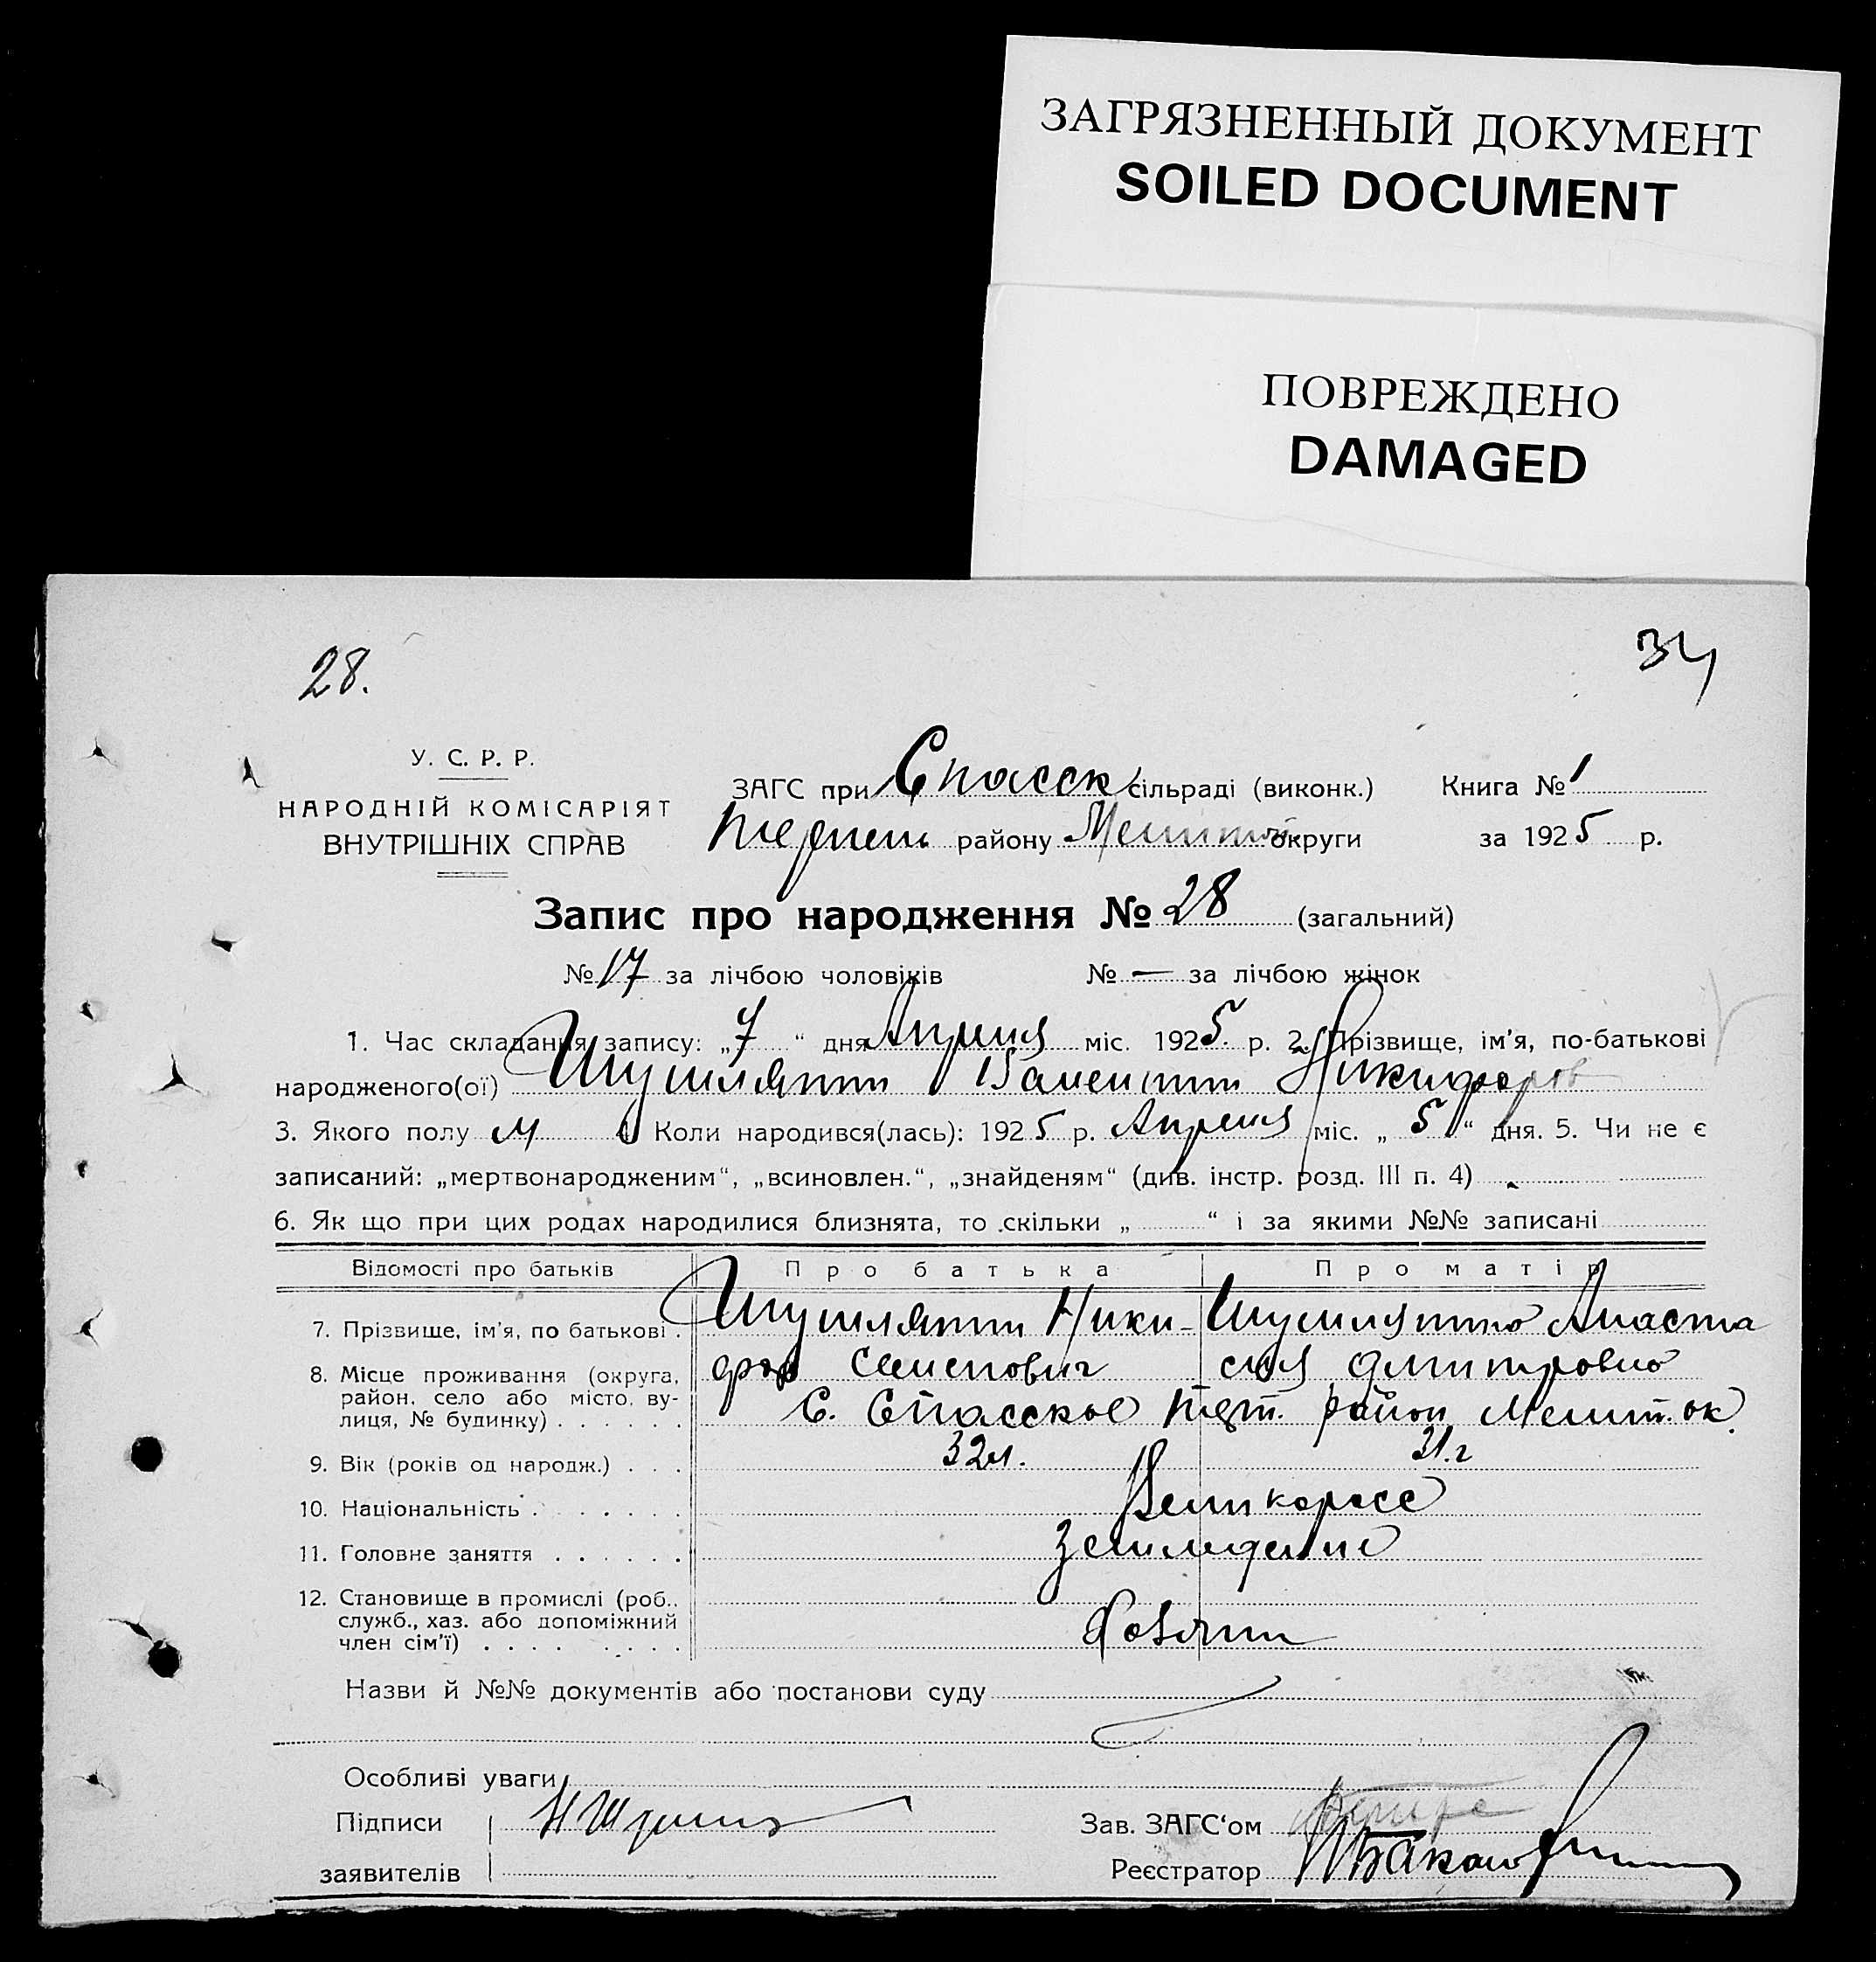 ЗАГРЯЗНЕННЫЙ ДОКУМЕНТ
SOILED DOCUMENT
ПОВРЕЖДЕНО
DAMAGED
28.
34
У. С. Р. Р.
НАРОДНІЙ КОМІСАРІЯТ
ВНУТРІШНІХ СПРАВ
ЗАГС при Спасск сільраді (виконк.) Книга № 1
району Мелит округи за 1925 р.
Запис про народження № 28 (загальний)
№ 17 за лічбою чоловіків № — за лічбою жінок
1. Час складання запису: „7“ дня Апреля міс. 1925. р. 2. Прізвище, ім'я, по-батькові
народженого(ої) Валентин Никифоров
3. Якого полу м 4. Коли народився(лась): 1925 р. Апреля міс. „5“ дня. 5. Чи не є
записаний: „мертвонародженим“, „всиновлен.“, „знайденям“ (див. інстр. розд. III п. 4)
6. Як що при цих родах народилися близнята, то скільки „ “ і за якими №№ записані
Відомості про батьків Про батька Про матір
7. Прізвище, ім'я, по батькові . Ники- Анаста
8. Місце проживання (округа, район, село або місто, вулиця, № будинку) . . . . . . фор Семенович сия Дмитровна
С. Спасское район Мелит. ок.
9. Вік (років од народж.) . . . 32 л. 31. г
10. Національність . . . . . . . Великоросс
11. Головне заняття . . . . . . Земледелие
12. Становище в промислі (роб.. служб., хаз. або допоміжний член сім'ї) . . . . . . . . Хозяин
Назви й №№ документів або постанови суду
Особливі уваги
Підписи
Зав. ЗАГС‘ом
заявителів
Реєстратор